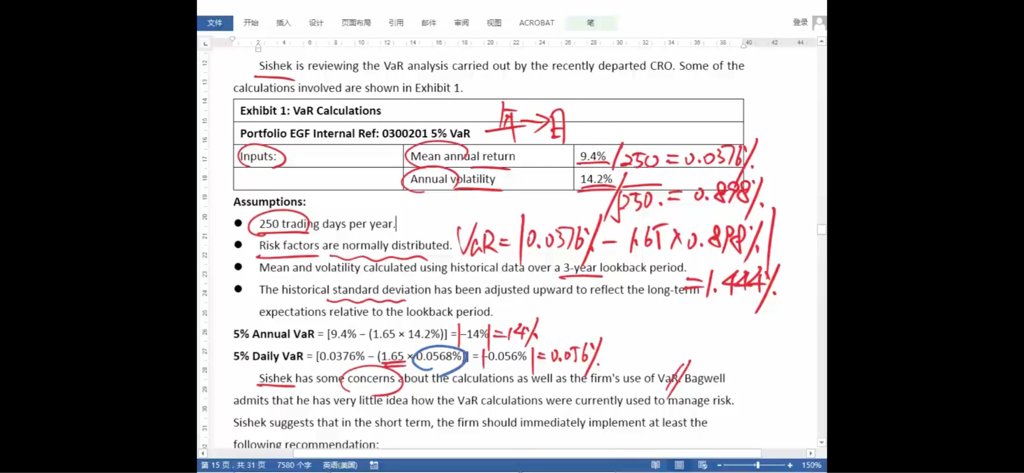 文件 开始 插入 设计 页面布局 引用 邮件 审阅 视图 ACROBAT 笔 登录
2 2 4 6 8 10 12 14 16 18 20 22 24 26 28 30 32 34 36 38 40 42 44
Sishek is reviewing the VaR analysis carried out by the recently departed CRO. Some of the
calculations involved are shown in Exhibit 1.
Exhibit 1: VaR Calculations
年→日
Portfolio EGF Internal Ref: 0300201 5% VaR
Inputs: Mean annual return 9.4% /250 = 0.0376%
Annual volatility 14.2% /√250 = 0.898%
Assumptions:
● 250 trading days per year.
● Risk factors are normally distributed. VaR = |0.0376% - 1.65 × 0.898%|
● Mean and volatility calculated using historical data over a 3-year lookback period.
= 1.444%
● The historical standard deviation has been adjusted upward to reflect the long-term
expectations relative to the lookback period.
5% Annual VaR = [9.4% – (1.65 × 14.2%)] = |–14%| = 14%
5% Daily VaR = [0.0376% – (1.65 × 0.0568%)] = |–0.056%| = 0.056%
Sishek has some concerns about the calculations as well as the firm's use of VaR. Bagwell
admits that he has very little idea how the VaR calculations were currently used to manage risk.
Sishek suggests that in the short term, the firm should immediately implement at least the
following recommendation:
第 15 页，共 31 页 7580 个字 英语(美国) 150%